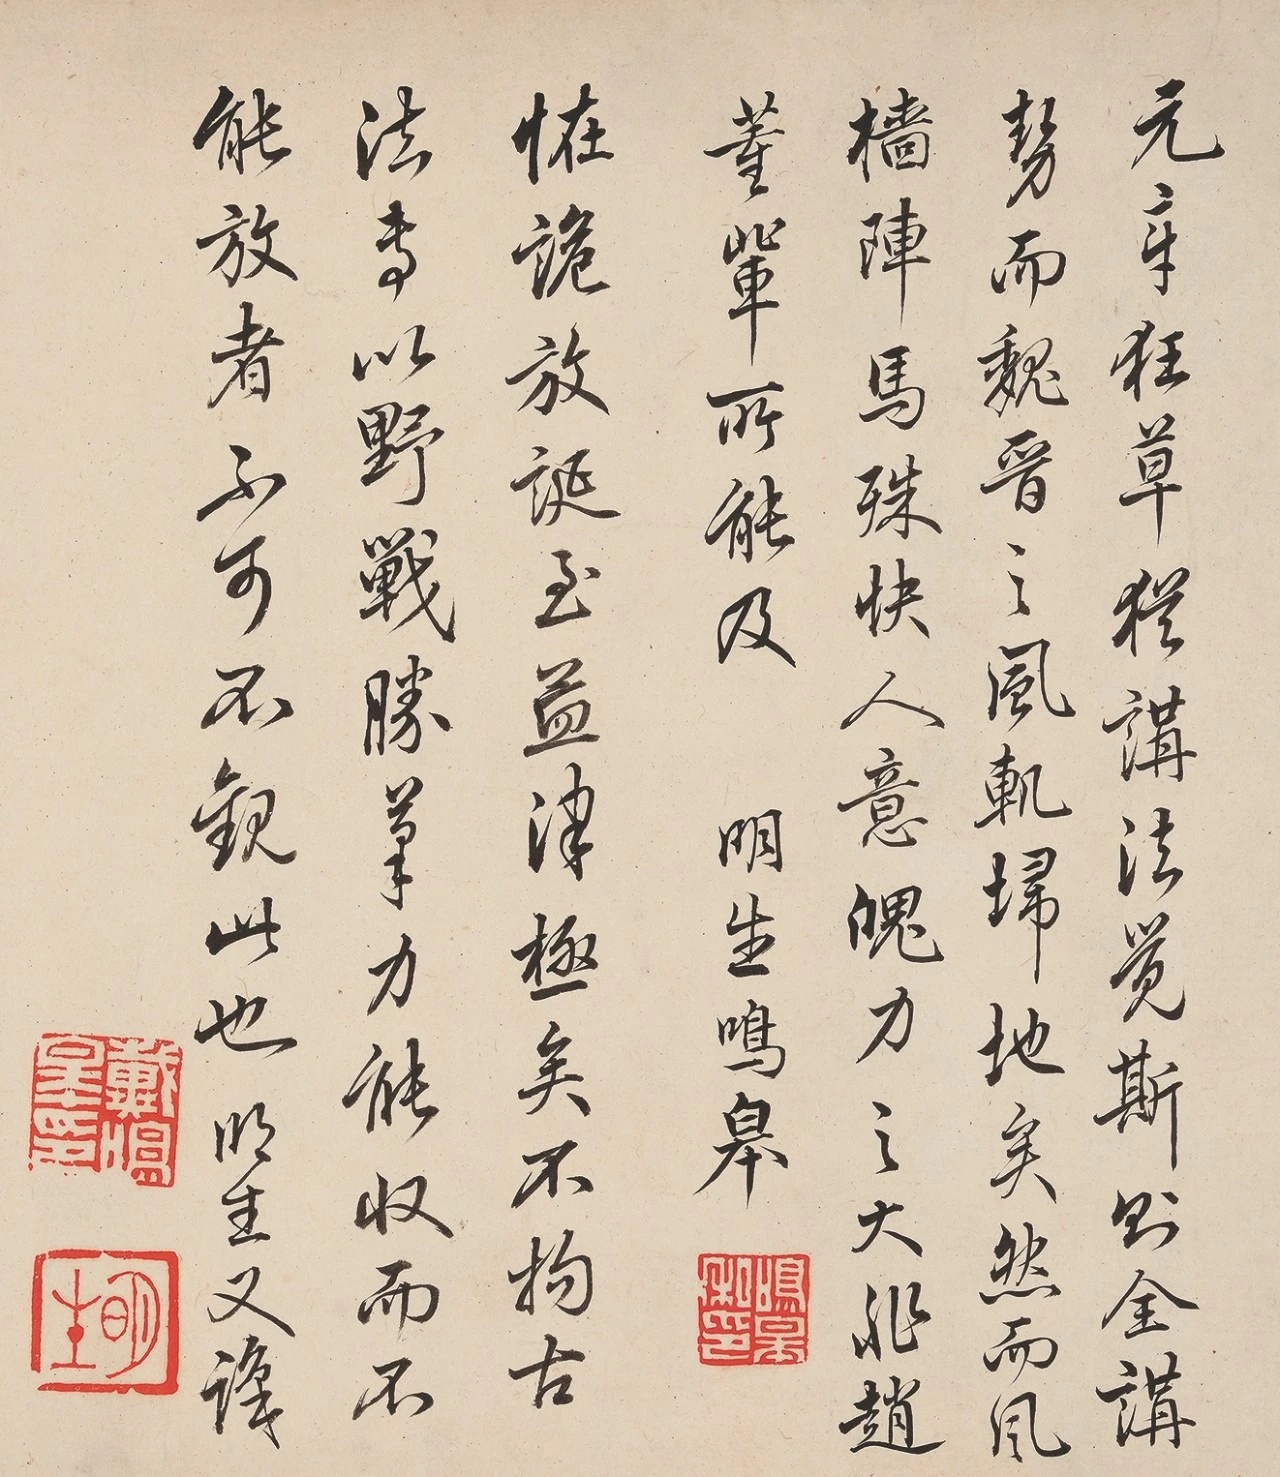 元章狂草猶講法覺斯則全講
勢而魏晉之風軌埽地矣然而風
檣陣馬殊快人意魄力之大非趙
董輩所能及　明生鳴皋
恠詭放誕至孟津極矣不拘古
法專以野戰勝筆力能收而不
能放者不可不觀此也　明生又識
明生